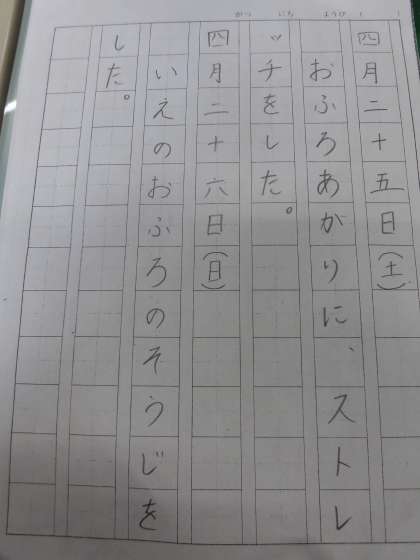 がつ にち ようび
四月二十五日(土)
おふろあがりに、ストレ
ッチをした。
四月二十六日(日)
いえのおふろのそうじを
した。